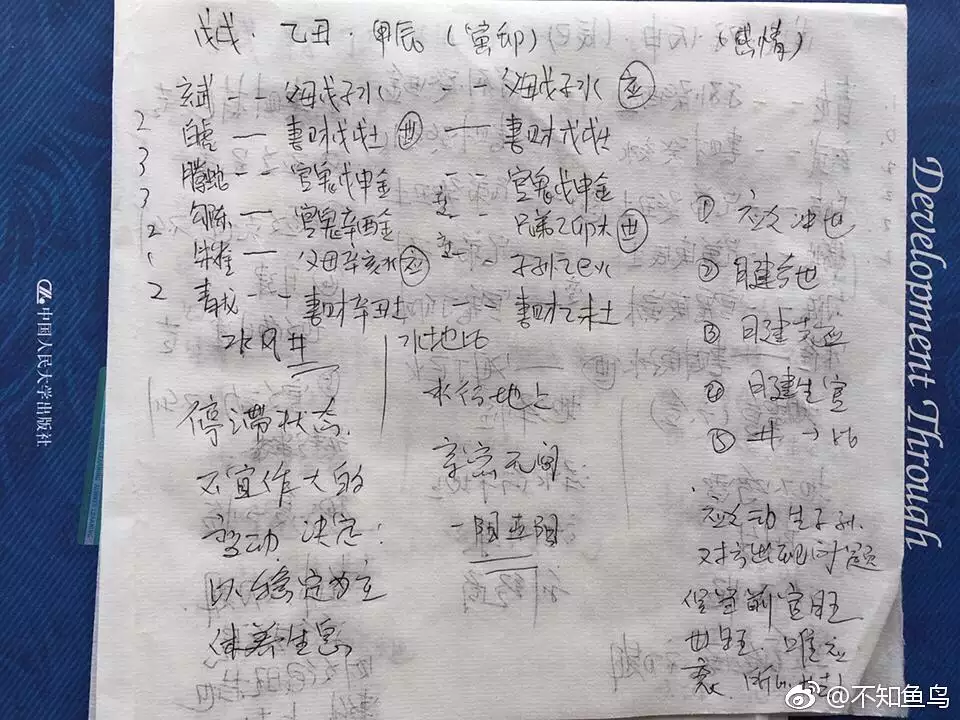 戊戌·乙丑·甲辰(寅卯) (感情)
玄武 -- 父母戊子水 -- 父母戊子水 应
2 白虎 — 妻财戊戌土 世 — 妻财戊戌土
3 腾蛇 -- 官鬼戊申金 -- 官鬼戊申金
3 勾陈 — 官鬼辛酉金 -- 兄弟乙卯木 世
2 朱雀 — 父母辛亥水 应 -- 子孙乙巳火
2 青龙 -- 妻财辛丑土 妻财乙未土
水风井
水地比
停滞状态.
不宜作大的
变动 决定:
以稳定为主
休养生息
水行地上
亲密无间
①
② 日建合世
③ 日建克应
④ 日建生官
⑤ 井→比
应爻动生子孙.
官旺
世旺. 唯应
衰.
Development Through
中国人民大学出版社
@不知鱼鸟